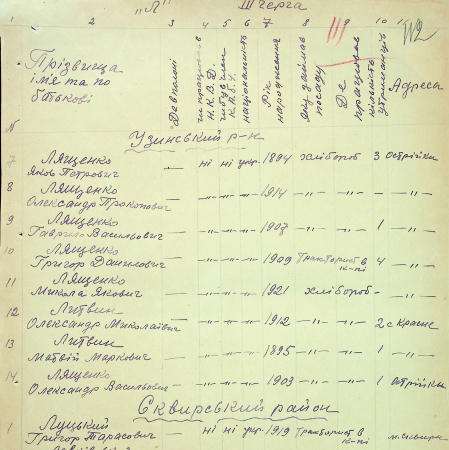 "Л" Шчерга
1 2 3 4 5 6 7 8 9 10 "
№ Прізвища ім'я та по батькові Де в полоні чи працював Н.К.В.Д. чи був чл. К.П.б.У. національність Рік народження яку займав посаду Де працював кількість утриманців Адреса
Узинський р-н
7 Лященко Яков Петрович — ні ні укр. 1894 хлібороб 3 Острійки
8 Лященко Олександр Прокопович — -"- -"- -"- 1914 -"- -"- — -"-
9 Лященко Гаврило Васильович — -"- -"- -"- 1907 -"- -"- 1 -"-
10 Лященко Григор Данилович — -"- -"- -"- 1909 Тракторист в к-пі 4 -"-
11 Лященко Микола Якович — -"- -"- -"- 1921 хлібороб - -"-
12 Литвин Олександр Миколаївич — -"- -"- -"- 1912 -"- -"- 2 с Красне
13 Литвин Матвій Маркович — -"- -"- -"- 1895 -"- -"- 1 -"-
14. Лященко Олександр Васильович — -"- -"- -"- 1903 -"- -"- 1 Острійки
Сквирський район
1 Луцький Григор Тарасович — ні ні укр. 1919 Тракторист в к-пі м. Сквира